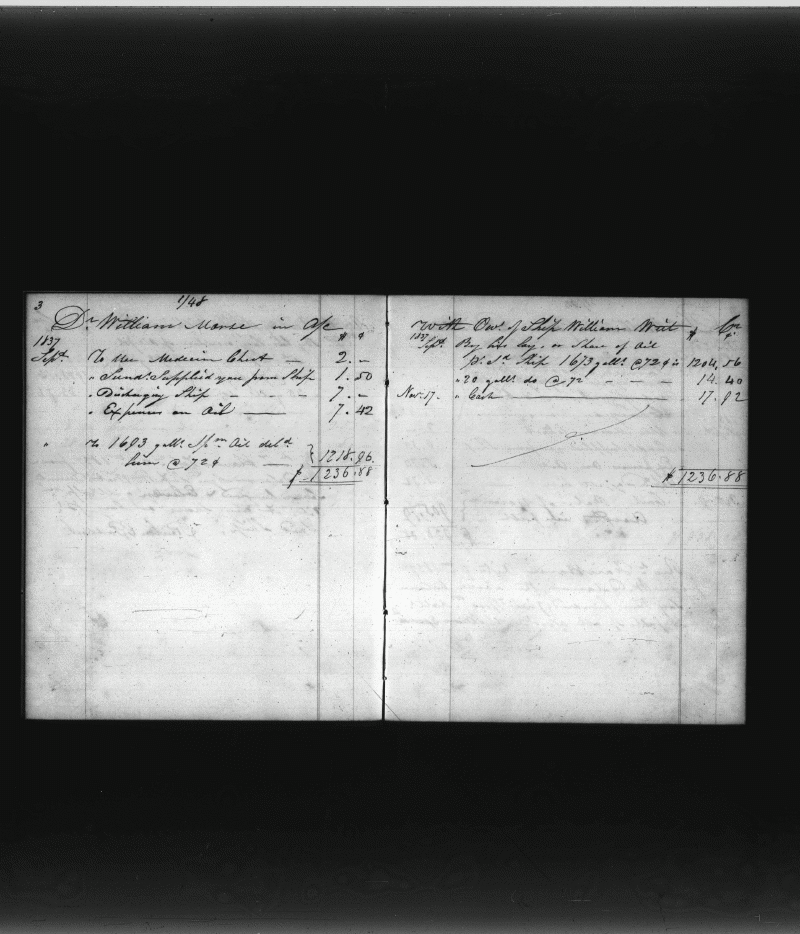 3
1/48
Dr William Morse in a/c
$ ¢
1837
Septr To Use Medicine Chest — 2. –
" Sunds Supplied you from Ship 1. 50
" Discharging Ship – – – 7. –
" Expenses on Oil — 7. 42
" To 1693 galls Spm Oil deld
him @ 72¢ — } 1218. 96
$ 1236. 88
with Owrs of Ship William Wirt Cr
$ ¢
1837
Septr By his lay, or Share of Oil
pr Sd Ship 1673 galls @ 72¢ is 1204, 56
" 20 galls do @ 72 – – – 14. 40
Nov. 17. " Cash — 17. 92
$ 1236. 88